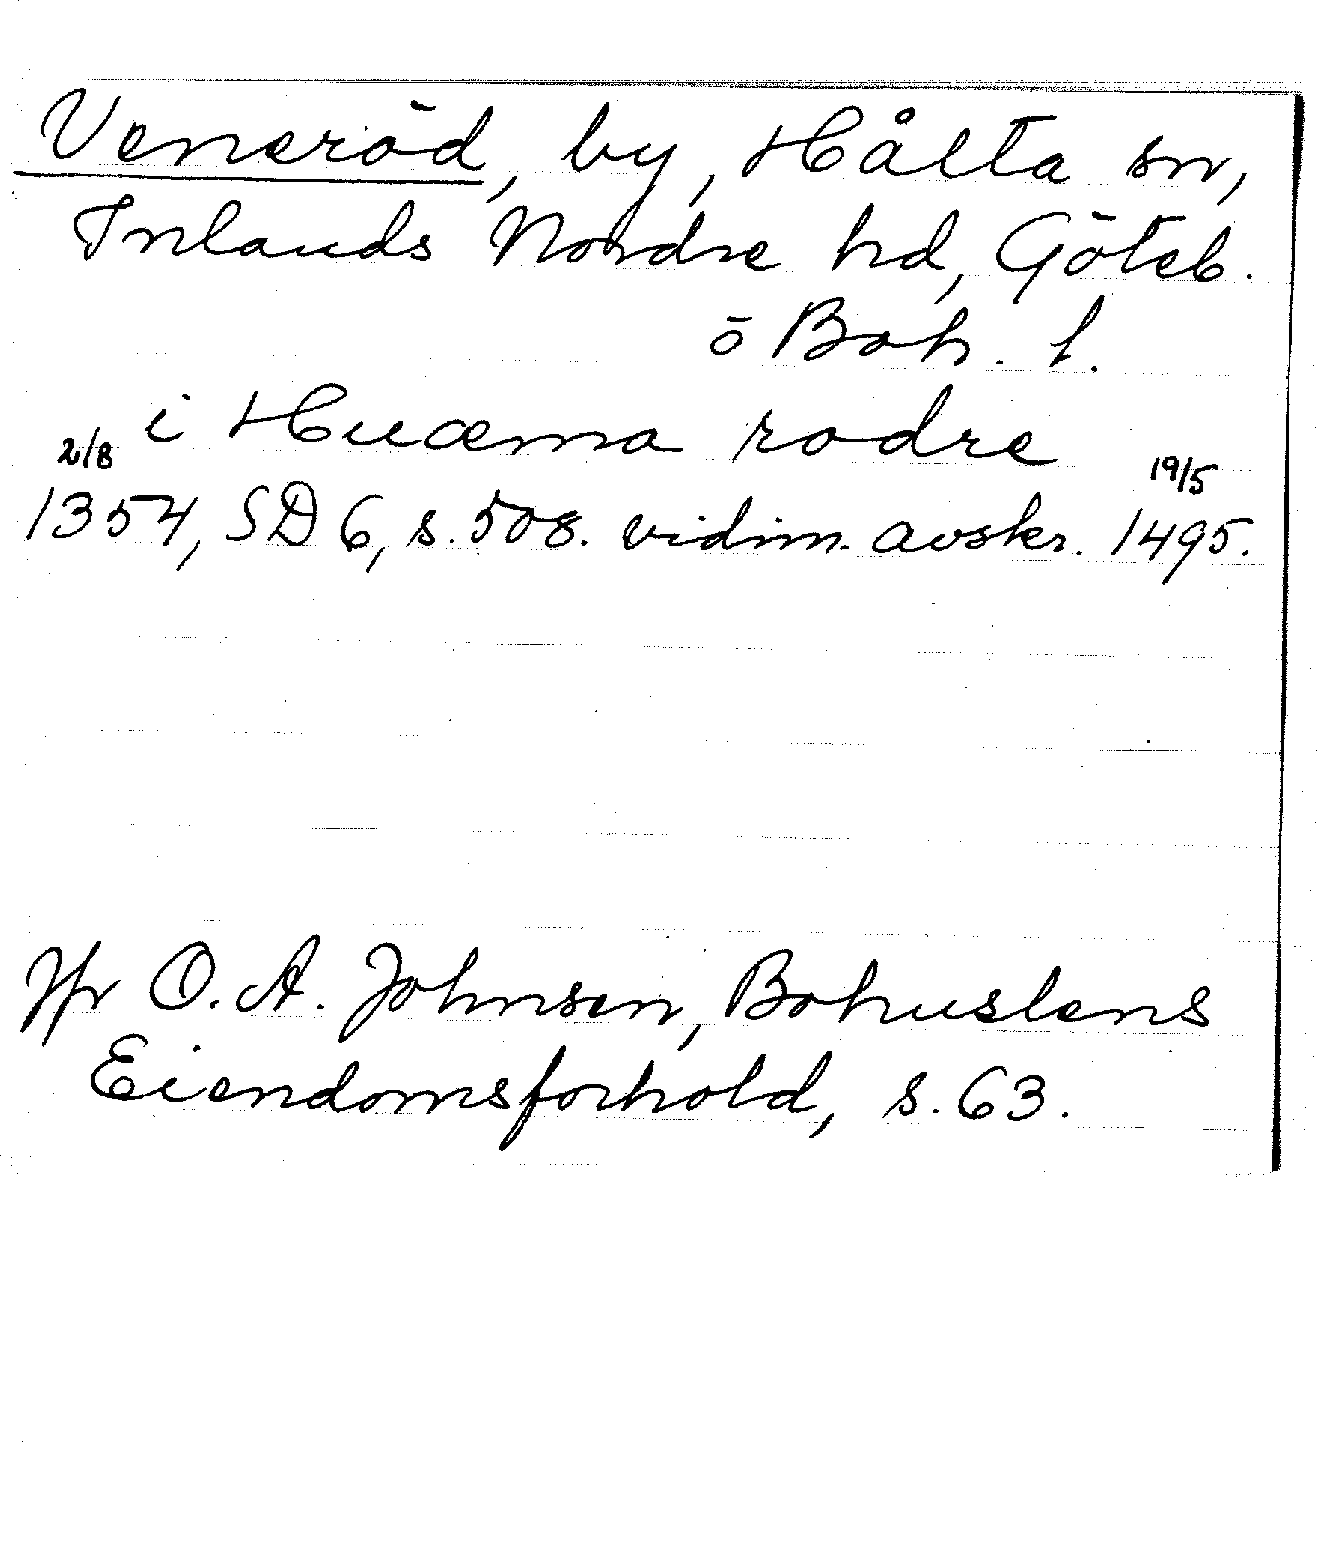 Veneröd, by, Hålta sn,
Inlands Nordre hd, Göteb.
o Boh. l.
i Huæma rodre
2/8 19/5
1354, SD 6, s. 508. vidim. avskr. 1495.
Jfr O. A. Johnsen, Bohuslens
Eiendomsforhold, s. 63.